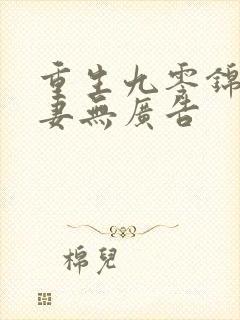 重生九零錦
妻無廣告
棉兒